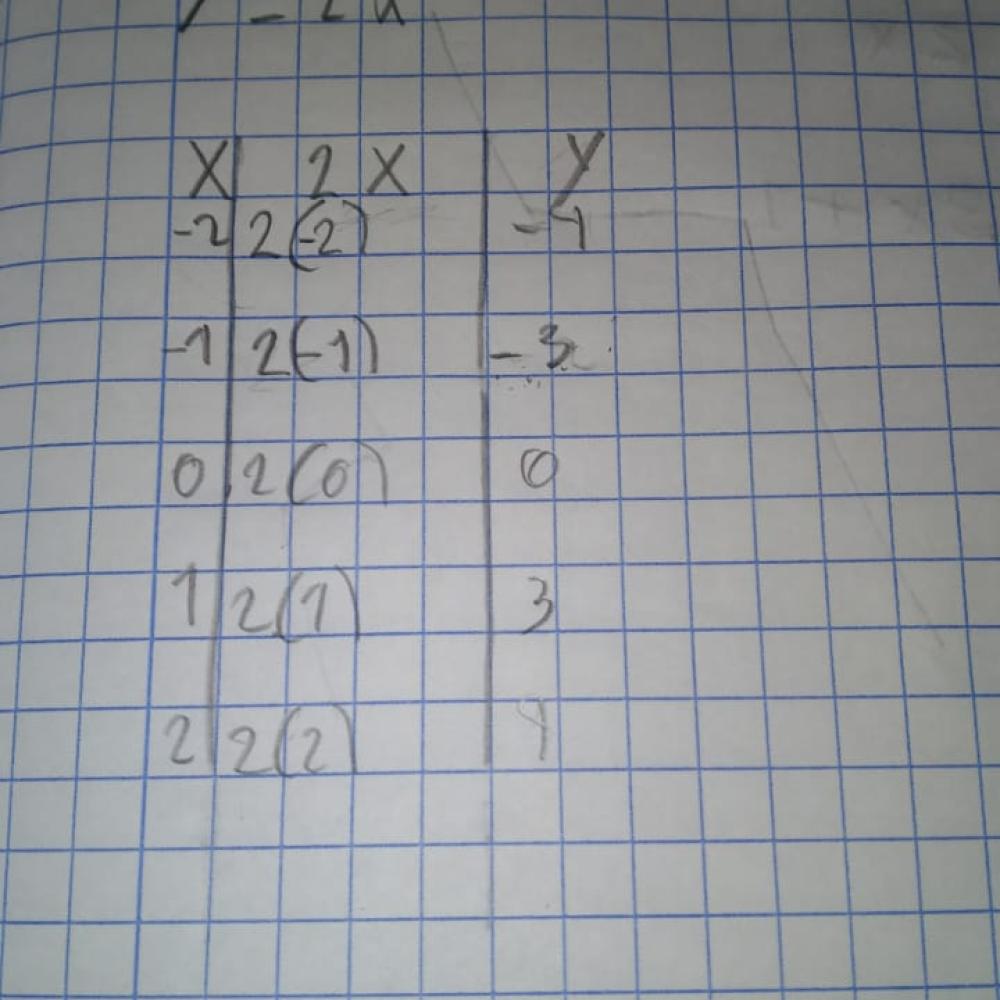 X 2 X y
-2 2(-2) -4
-1 2(-1) -3
0 2(0) 0
1 2(1) 3
2 2(2) 4